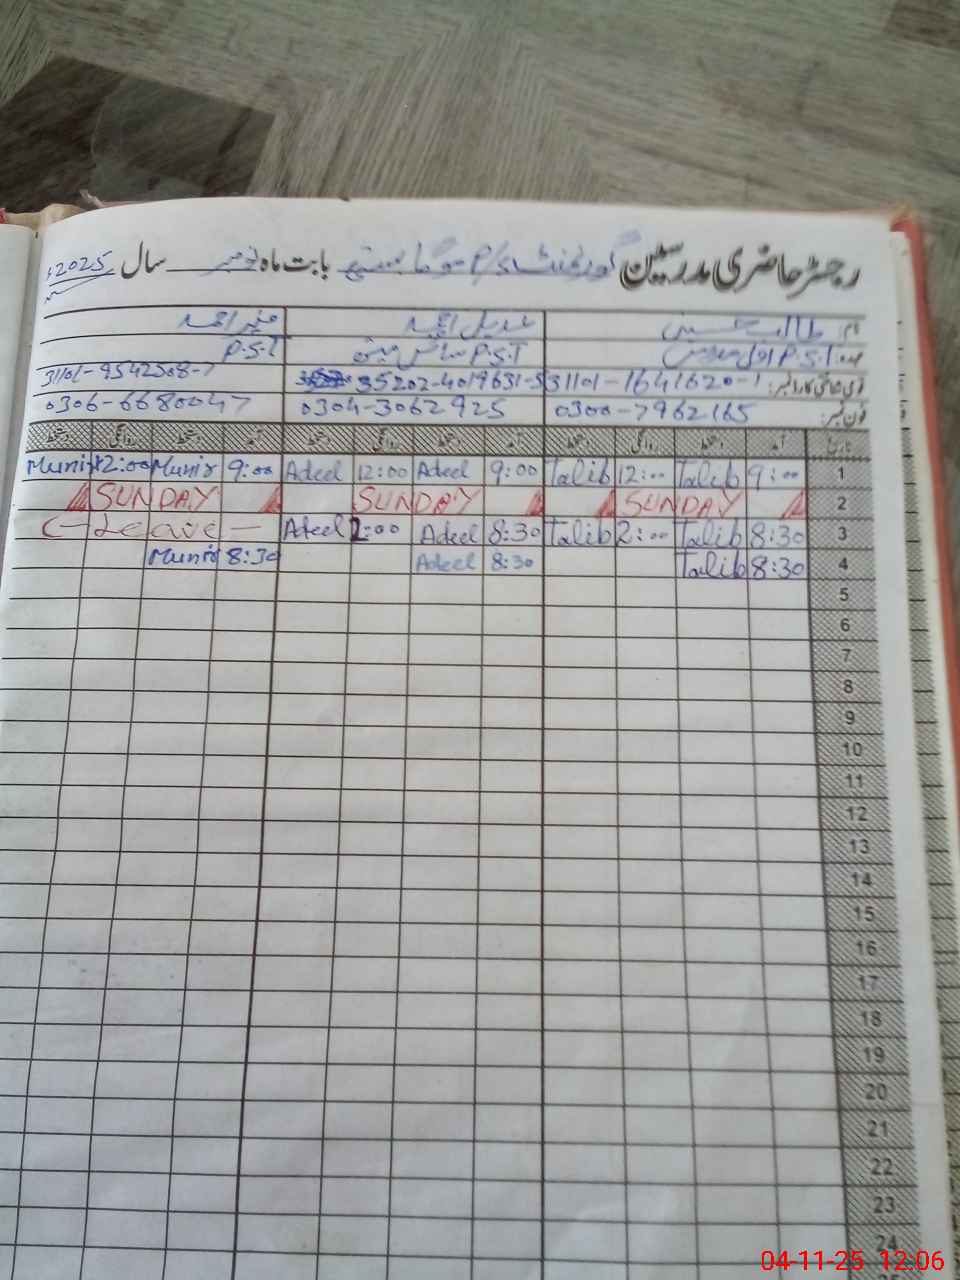 رجسٹر حاضری مدرسین گورنمنٹ P/S بابت ماہ نومبر سال 2025ء
نام: طالب حسین عدیل احمد منیر احمد
عہدہ: P.S.T اول مدرس P.S.T P.S.T
قومی شناختی کارڈ نمبر: 31101-1641620-1 35202-4019631-5 31101-9542508-7
فون نمبر: 0300-7962165 0304-3062925 0306-6680047
تاریخ آمد دستخط روانگی دستخط آمد دستخط روانگی دستخط آمد دستخط روانگی دستخط
Munir 12:00 Munir 9:00 Adeel 12:00 Adeel 9:00 Talib 12:00 Talib 9:00 1
SUNDAY SUNDAY SUNDAY 2
Leave Adeel 2:00 Adeel 8:30 Talib 2:00 Talib 8:30 3
Munir 8:30 Adeel 8:30 Talib 8:30 4
5
6
7
8
9
10
11
12
13
14
15
16
17
18
19
20
21
22
23
24
04-11-25 12:06